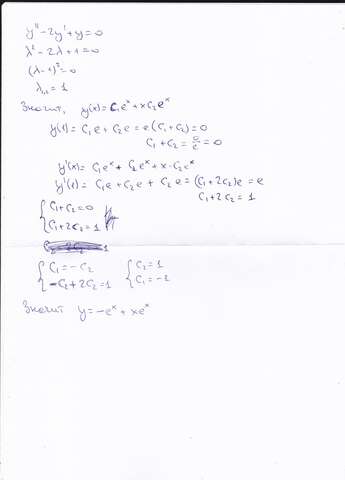 y'' - 2y' + y = 0
λ² - 2λ + 1 = 0
(λ - 1)² = 0
λ₁,₂ = 1
Значит, y(x) = C₁eˣ + xC₂eˣ
y(1) = C₁e + C₂e = e(C₁ + C₂) = 0
C₁ + C₂ = 0/e = 0
y'(x) = C₁eˣ + C₂eˣ + x·C₂eˣ
y'(1) = C₁e + C₂e + C₂e = (C₁ + 2C₂)e = e
C₁ + 2C₂ = 1
{ C₁ + C₂ = 0
C₁ + 2C₂ = 1
{ C₁ = -C₂ { C₂ = 1
-C₂ + 2C₂ = 1 C₁ = -2
Значит y = -eˣ + xeˣ